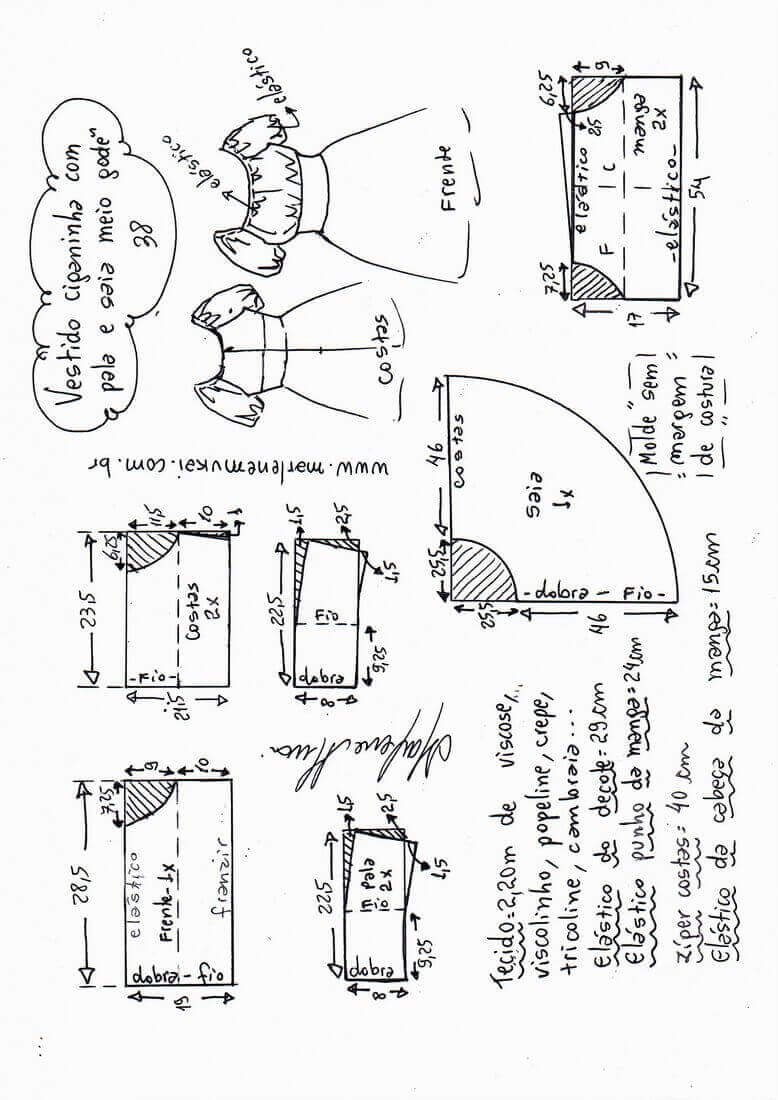 Vestido ciganinha com
pala e saia meio godê
38
elástico
elástico
Frente
costas
www.marlenemukai.com.br
9
5,29
2,5
elástico
F
C
manga
2x
-elástico-
54
7,25
17
Molde sem
margem
de costura
46
costas
saia
1x
25,5
25,5
-dobra- Fio-
46
11,5
10
1
9,25
23,5
costas
2x
-Fio-
21,5
1,5
2,5
1,5
22,5
Fio
dobra
9,25
8
9
10
7,25
28,5
elástico
Frente-1x
franzir
dobra-fio
19
1,5
2,5
1,5
22,5
pala
2x
dobra
9,25
8
Tecido=2,20m de viscose,
viscolinho, popeline, crepe,
tricoline, cambraia...
Elástico do decote=29cm
Elástico punho da manga=24cm
zíper costas= 40 cm
Elástico da cabeça da manga=15cm